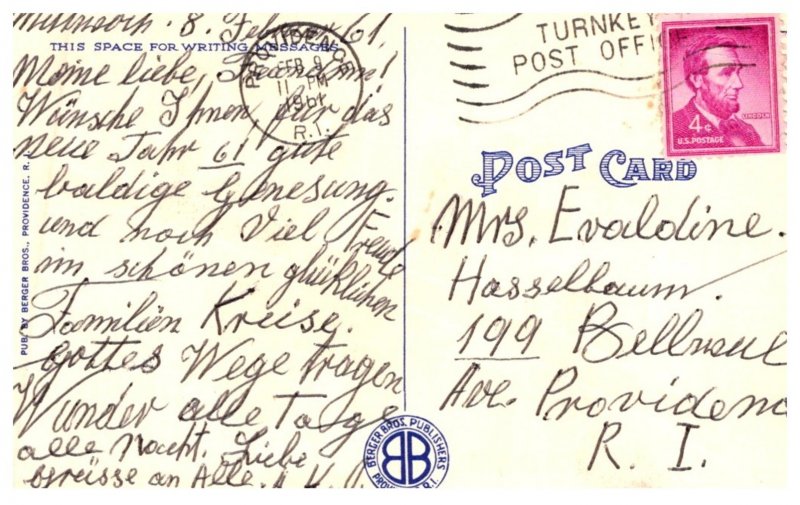 Mittwoch. 8. Februar 61.
THIS SPACE FOR WRITING MESSAGES
Meine liebe, Freundin!
Wünsche Ihnen, für das
neue Jahr 61 gute
baldige Genesung.
und noch Viel Freude
im schönen glüklichen
Familien Kreise.
Gottes Wege tragen
Wunder alle Tage
alle Nacht. Liebe
Grüsse an Alle.
PUB. BY BERGER BROS., PROVIDENCE, R. I.
PROVIDENCE
FEB 9
11 PM
1961
R.I.
TURNKEY
POST OFFI
LINCOLN
4¢
U.S. POSTAGE
POST CARD
Mrs. Evaldine.
Hasselbaum.
199 Bellvue
Ave. Providenc
R. I.
BERGER BROS. PUBLISHERS
BB